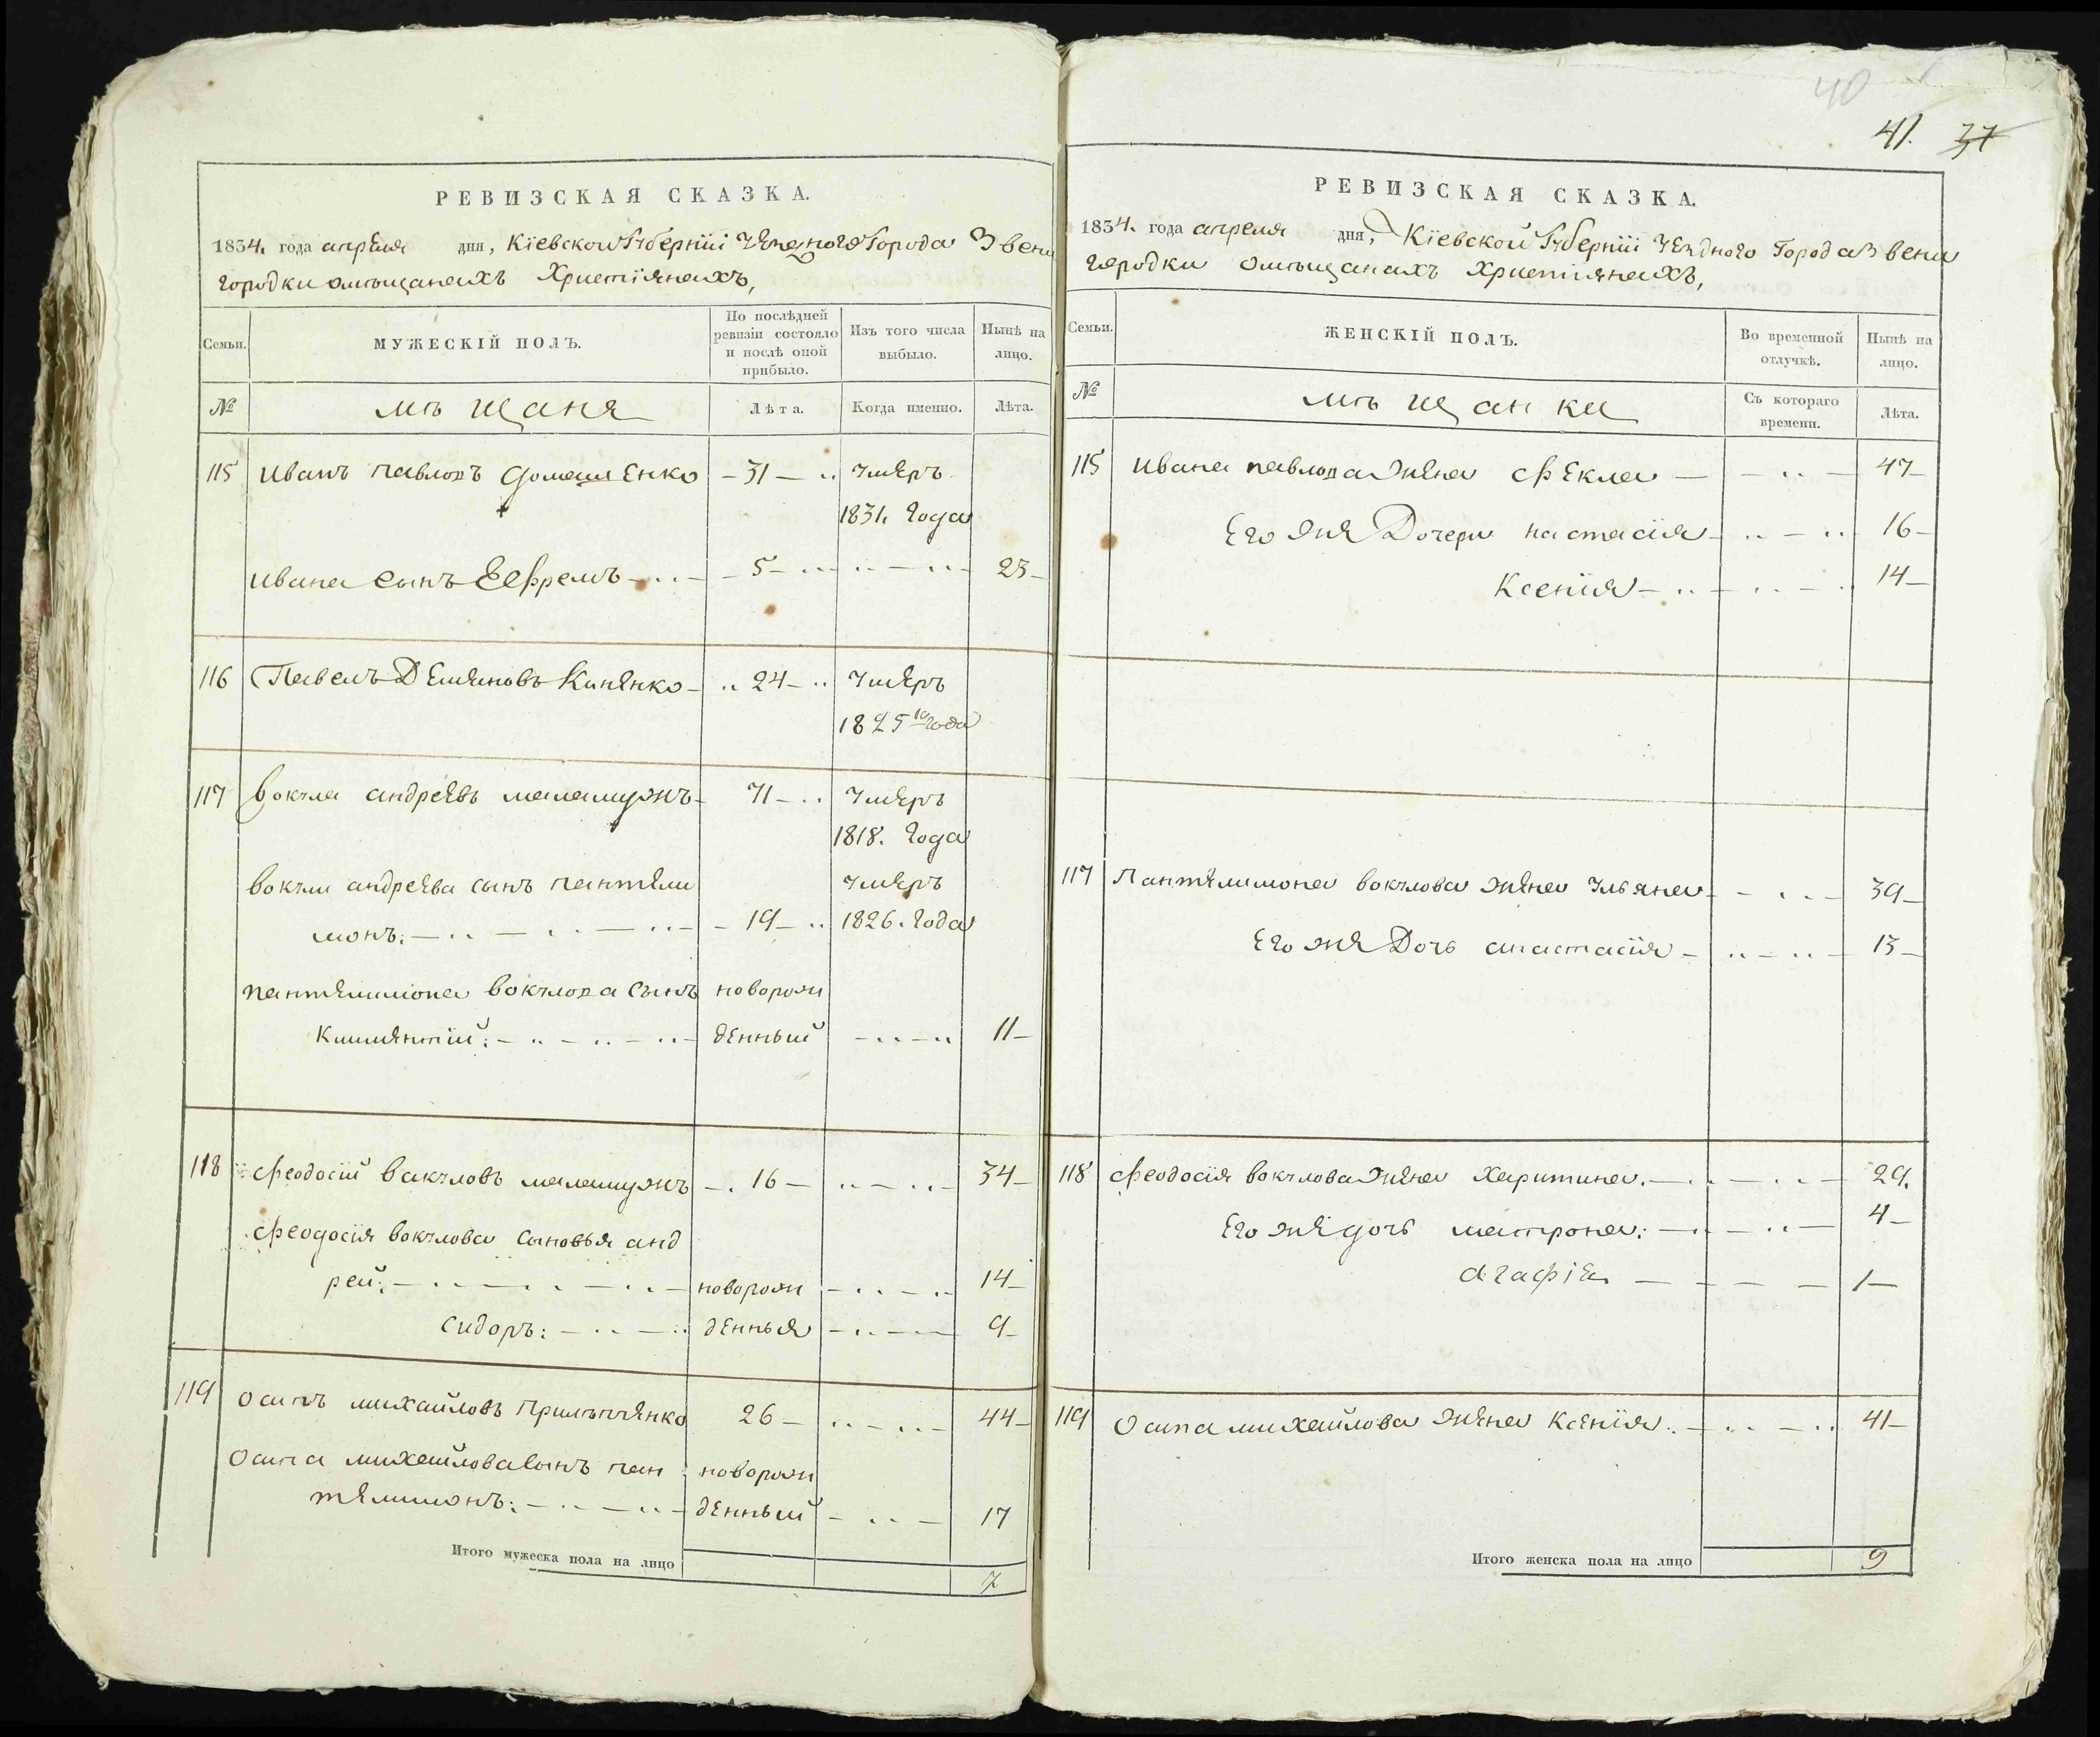 40
41. 37
РЕВИЗСКАЯ СКАЗКА.
1834. года апреля дня, Кіевской Губерніи Уезного Города Звени
городки омѣщанахъ Христіянахъ,
Семьи. МУЖЕСКІЙ ПОЛЪ. По послѣдней ревизіи состояло и послѣ оной прибыло. Изъ того числа выбыло. Нынѣ на лицо.
№ мѣщаня Лѣта. Когда именно. Лѣта.
115 Иванъ павловъ домашенко – 31 – умеръ
1831. года
Ивана сынъ Ефремъ – 5 – 23 –
116 Павелъ Демяновъ Киненко – 24 – умеръ
1825го года
117 Вокула андреевъ маламужъ – 71 – умеръ
1818. года
вокули андреева сынъ пантели умеръ
монъ: – 19 – 1826. года
пантелимона вокулова сынъ новорож
Климентій: – денный 11 –
118 феодосій вакуловъ маламужъ – 16 – 34 –
феодосія вокулова сыновья анд
рей: – новорож 14 –
сидоръ: – денныя 9 –
119 осипъ михайловъ Прилѣпченко 26 – 44 –
осипа михайлова сынъ пан новорож
телимонъ: – денный – 17
Итого мужеска пола на лицо 7
РЕВИЗСКАЯ СКАЗКА.
1834. года апреля дня, Кіевской Губерніи Уездного Города Звени
городки омѣщанахъ христіянахъ,
Семьи. ЖЕНСКІЙ ПОЛЪ. Во временной отлучкѣ. Нынѣ на лицо.
№ мѣщанки Съ котораго времени. Лѣта.
115 Ивана павлова жена фекла – 47 –
Его же Дочери настасія – 16 –
Ксенія – 14 –
117 Пантелимона вокулова жена Ульяна – 39 –
Его же Дочь анастасія – 13 –
118 феодосія вокулова жена Харитина. – 29.
Его же дочь матрона: – 4 –
агафія – 1 –
119 осипа михайлова жена Ксенія: – 41 –
Итого женска пола на лицо 9